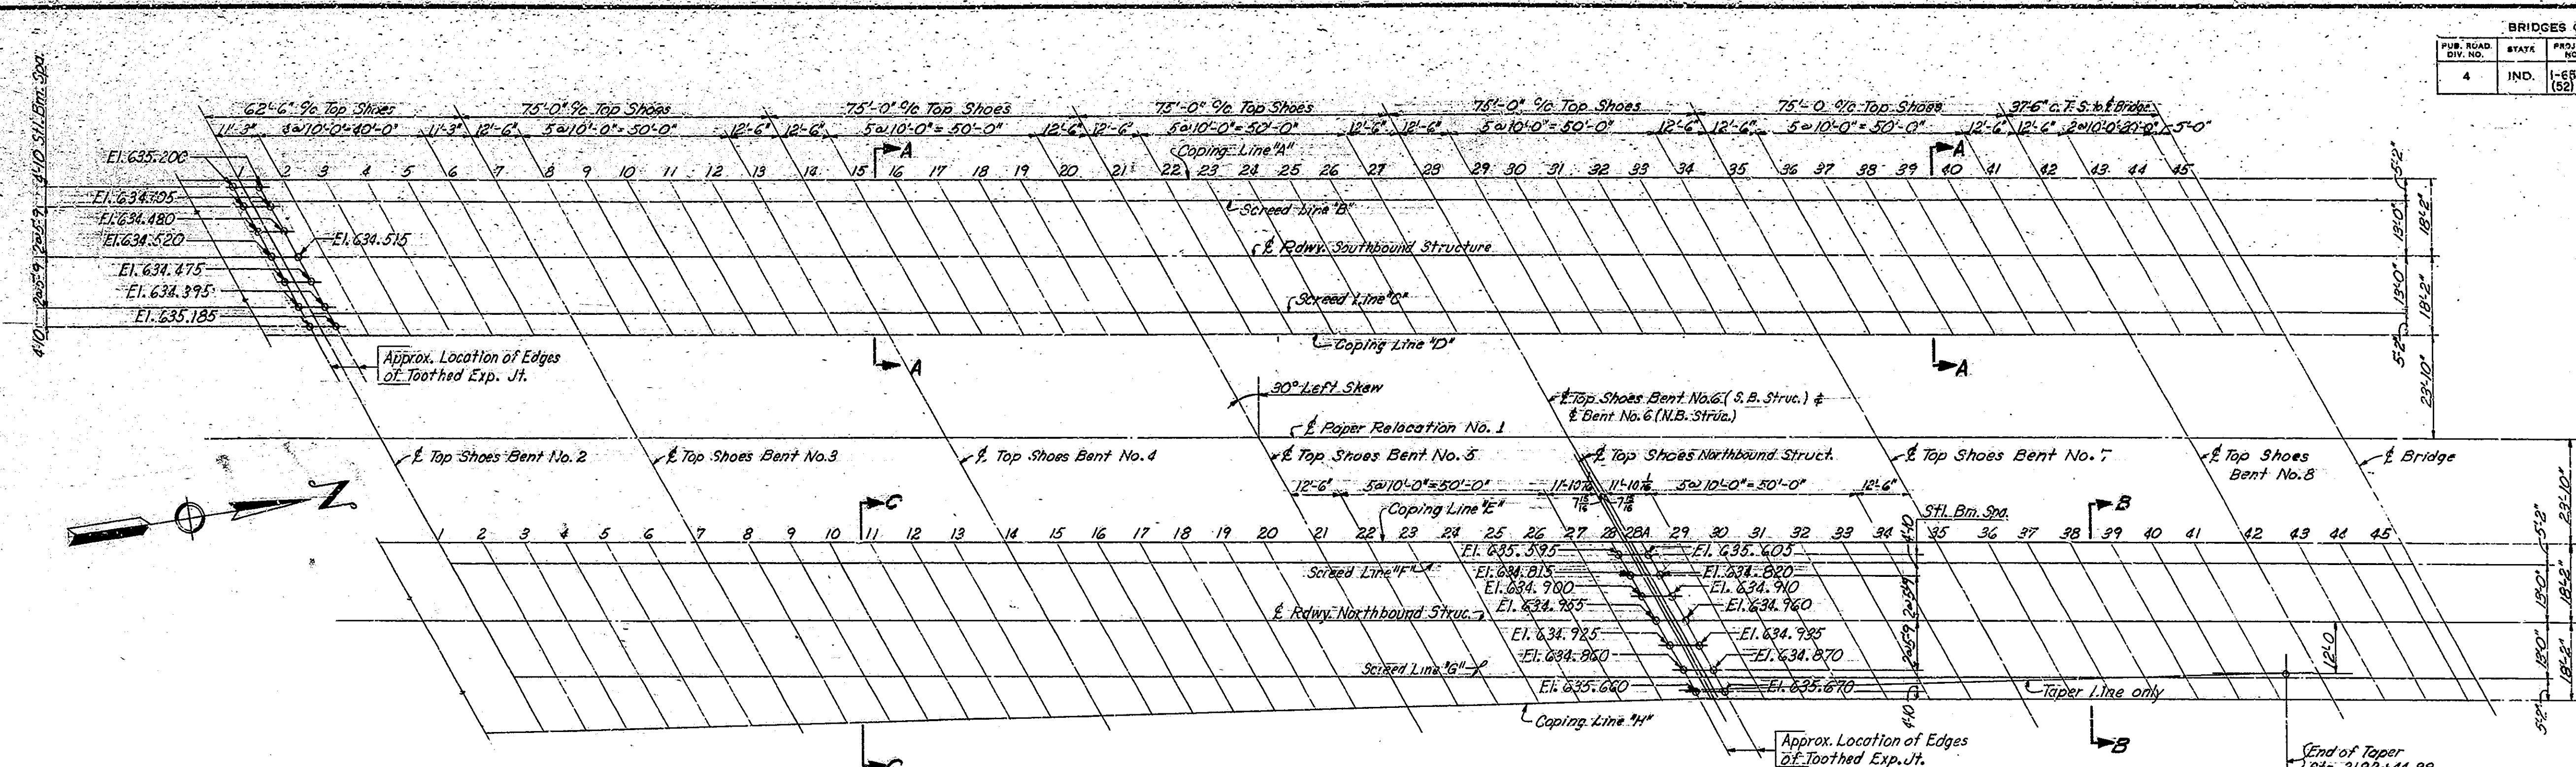 BRIDGES
PUB. ROAD DIV. NO.
STATE
4
IND.
(52)
4'-10 Stl. Bm. Spa.
62'-6" c/c Top Shoes
75'-0" c/c Top Shoes
75'-0" c/c Top Shoes
75'-0" c/c Top Shoes
75'-0" c/c Top Shoes
75'-0 c/c Top Shoes
37'-6" c. T. S. to ℄ Bridge
11'-3" 4@10'-0"=40'-0" 11'-3" 12'-6" 5@10'-0"=50'-0" 12'-6" 12'-6" 5@10'-0"=50'-0" 12'-6" 12'-6" 5@10'-0"=50'-0" 12'-6" 12'-6" 5@10'-0"=50'-0" 12'-6" 12'-6" 5@10'-0"=50'-0" 12'-6" 12'-6" 2@10'-0"=20'-0" 5'-0"
A A
Coping Line "A"
1 2 3 4 5 6 7 8 9 10 11 12 13 14 15 16 17 18 19 20 21 22 23 24 25 26 27 28 29 30 31 32 33 34 35 36 37 38 39 40 41 42 43 44 45
El. 635.200
El. 634.480
El. 634.520
El. 634.515
El. 634.475
El. 634.395
El. 635.185
2@5'-9
2@5'-9
4'-10
Screed Line "B"
℄ Rdwy. Southbound Structure
Screed Line "C"
Coping Line "D"
A A
5'-2"
13'-0"
18'-2"
13'-0"
18'-2"
5'-2"
23'-10"
Approx. Location of Edges
of Toothed Exp. Jt.
30° Left Skew
℄ Top Shoes Bent No. 6 (S.B. Struc.) &
℄ Bent No. 6 (N.B. Struc.)
℄ Paper Relocation No. 1
℄ Top Shoes Bent No. 2
℄ Top Shoes Bent No. 3
℄ Top Shoes Bent No. 4
℄ Top Shoes Bent No. 5
℄ Top Shoes Northbound Struct.
℄ Top Shoes Bent No. 7
℄ Top Shoes
Bent No. 8
℄ Bridge
N
12'-6" 5@10'-0"=50'-0" 11'-10 1/16 11'-10 1/16 5@10'-0"=50'-0" 12'-6"
7 15/16 7 15/16
C
Coping Line "E"
Stl. Bm. Spa.
B
1 2 3 4 5 6 7 8 9 10 11 12 13 14 15 16 17 18 19 20 21 22 23 24 25 26 27 28 28A 29 30 31 32 33 34 35 36 37 38 39 40 41 42 43 44 45
El. 635.595
El. 635.605
Screed Line "F"
El. 634.815
El. 634.820
El. 634.900
El. 634.910
℄ Rdwy. Northbound Struc.
El. 634.955
El. 634.960
El. 634.925
El. 634.935
Screed Line "G"
El. 634.860
El. 634.870
El. 635.660
El. 635.670
4'-10
2@5'-9
2@5'-9
4'-10
12'-0
Taper Line only
Coping Line "H"
5'-2"
23'-10"
13'-0"
18'-2"
13'-0"
18'-2"
5'-2"
C
Approx. Location of Edges
of Toothed Exp. Jt.
B
End of Taper